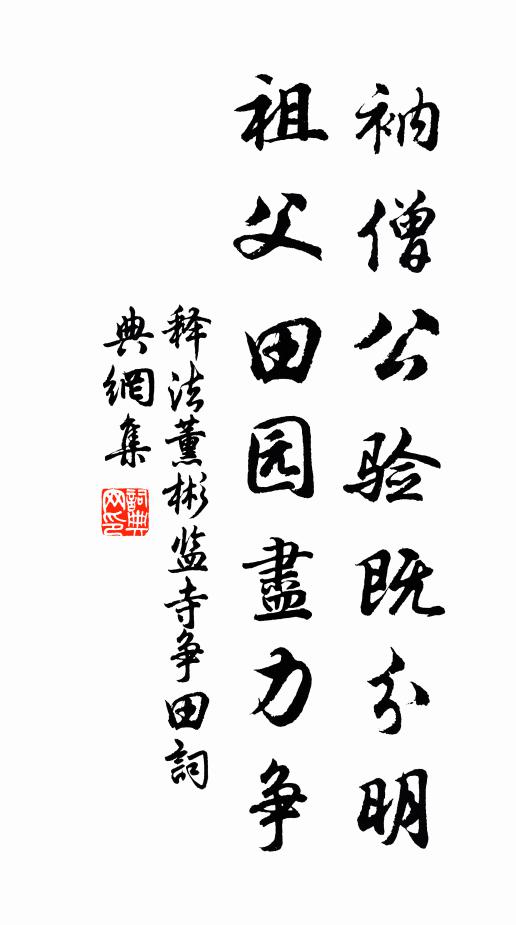 衲僧公验既分明
祖父田园盡力争
释法薰彬监寺争田詞
典網集
詞典网印